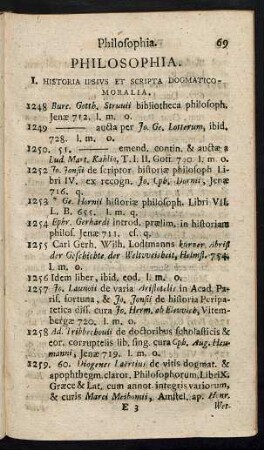 Philosophia. 69
PHILOSOPHIA.
I. HISTORIA IPSIVS ET SCRIPTA DOGMATICO-
MORALIA.
1248 Burc. Gotth. Struvii bibliotheca philosoph.
Jenæ 712. l. m. o.
1249 ——— aucta per Jo. Ge. Lotterum, ibid.
728. l. m. o.
1250. 51. ——— emend. contin. & aucta a
Lud. Mart. Kahlio, T. I. II. Gott. 740 l. m. o.
1252 Jo. Jonsii de scriptor. historiæ philosoph Li-
bri IV. ex recogn. Jo. Cph. Dornii, Jenæ
716. q.
1253 * Ge. Hornii historiæ philosoph. Libri VII.
L. B. 655. l. m. q.
1254 Ephr. Gerhardi introd. prælim. in historiam
philos. Jenæ 711. cf. q.
1255 Carl Gerh. Wilh. Lodtmanns kurzer Abriß
der Geschichte der Weltweisheit, Helmst. 754.
l. m. o.
1256 Idem liber, ibid. eod. l. m. o.
1257 Jo. Launoii de varia Aristotelis in Acad. Pa-
ris. fortuna, & Jo. Jonsii de historia Peripa-
tetica diss. cura Jo. Herm. ab Elswich, Vitem-
bergæ 720. l. m. o.
1258 Ad. Tribbechovii de doctoribus scholasticis &
eor. corruptelis lib. sing. cura Cph. Aug. Heu-
manni, Jenæ 719. l. m. o.
1259. 60. Diogenes Laertius de vitis dogmat. &
apophthegm. claror. Philosophorum, Libri X.
Græce & Lat. cum annot. integris variorum,
& curis Marci Meibomii, Amstel. ap. Henr.
E 3 Wet-